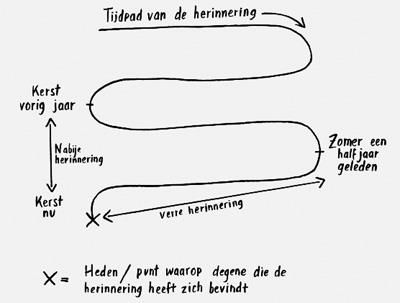 Tijdpad van de herinnering
Kerst
vorig jaar
Nabije
herinnering
Kerst
nu
Zomer een
half jaar
geleden
verre herinnering
X = Heden / punt waarop degene die de
herinnering heeft zich bevindt